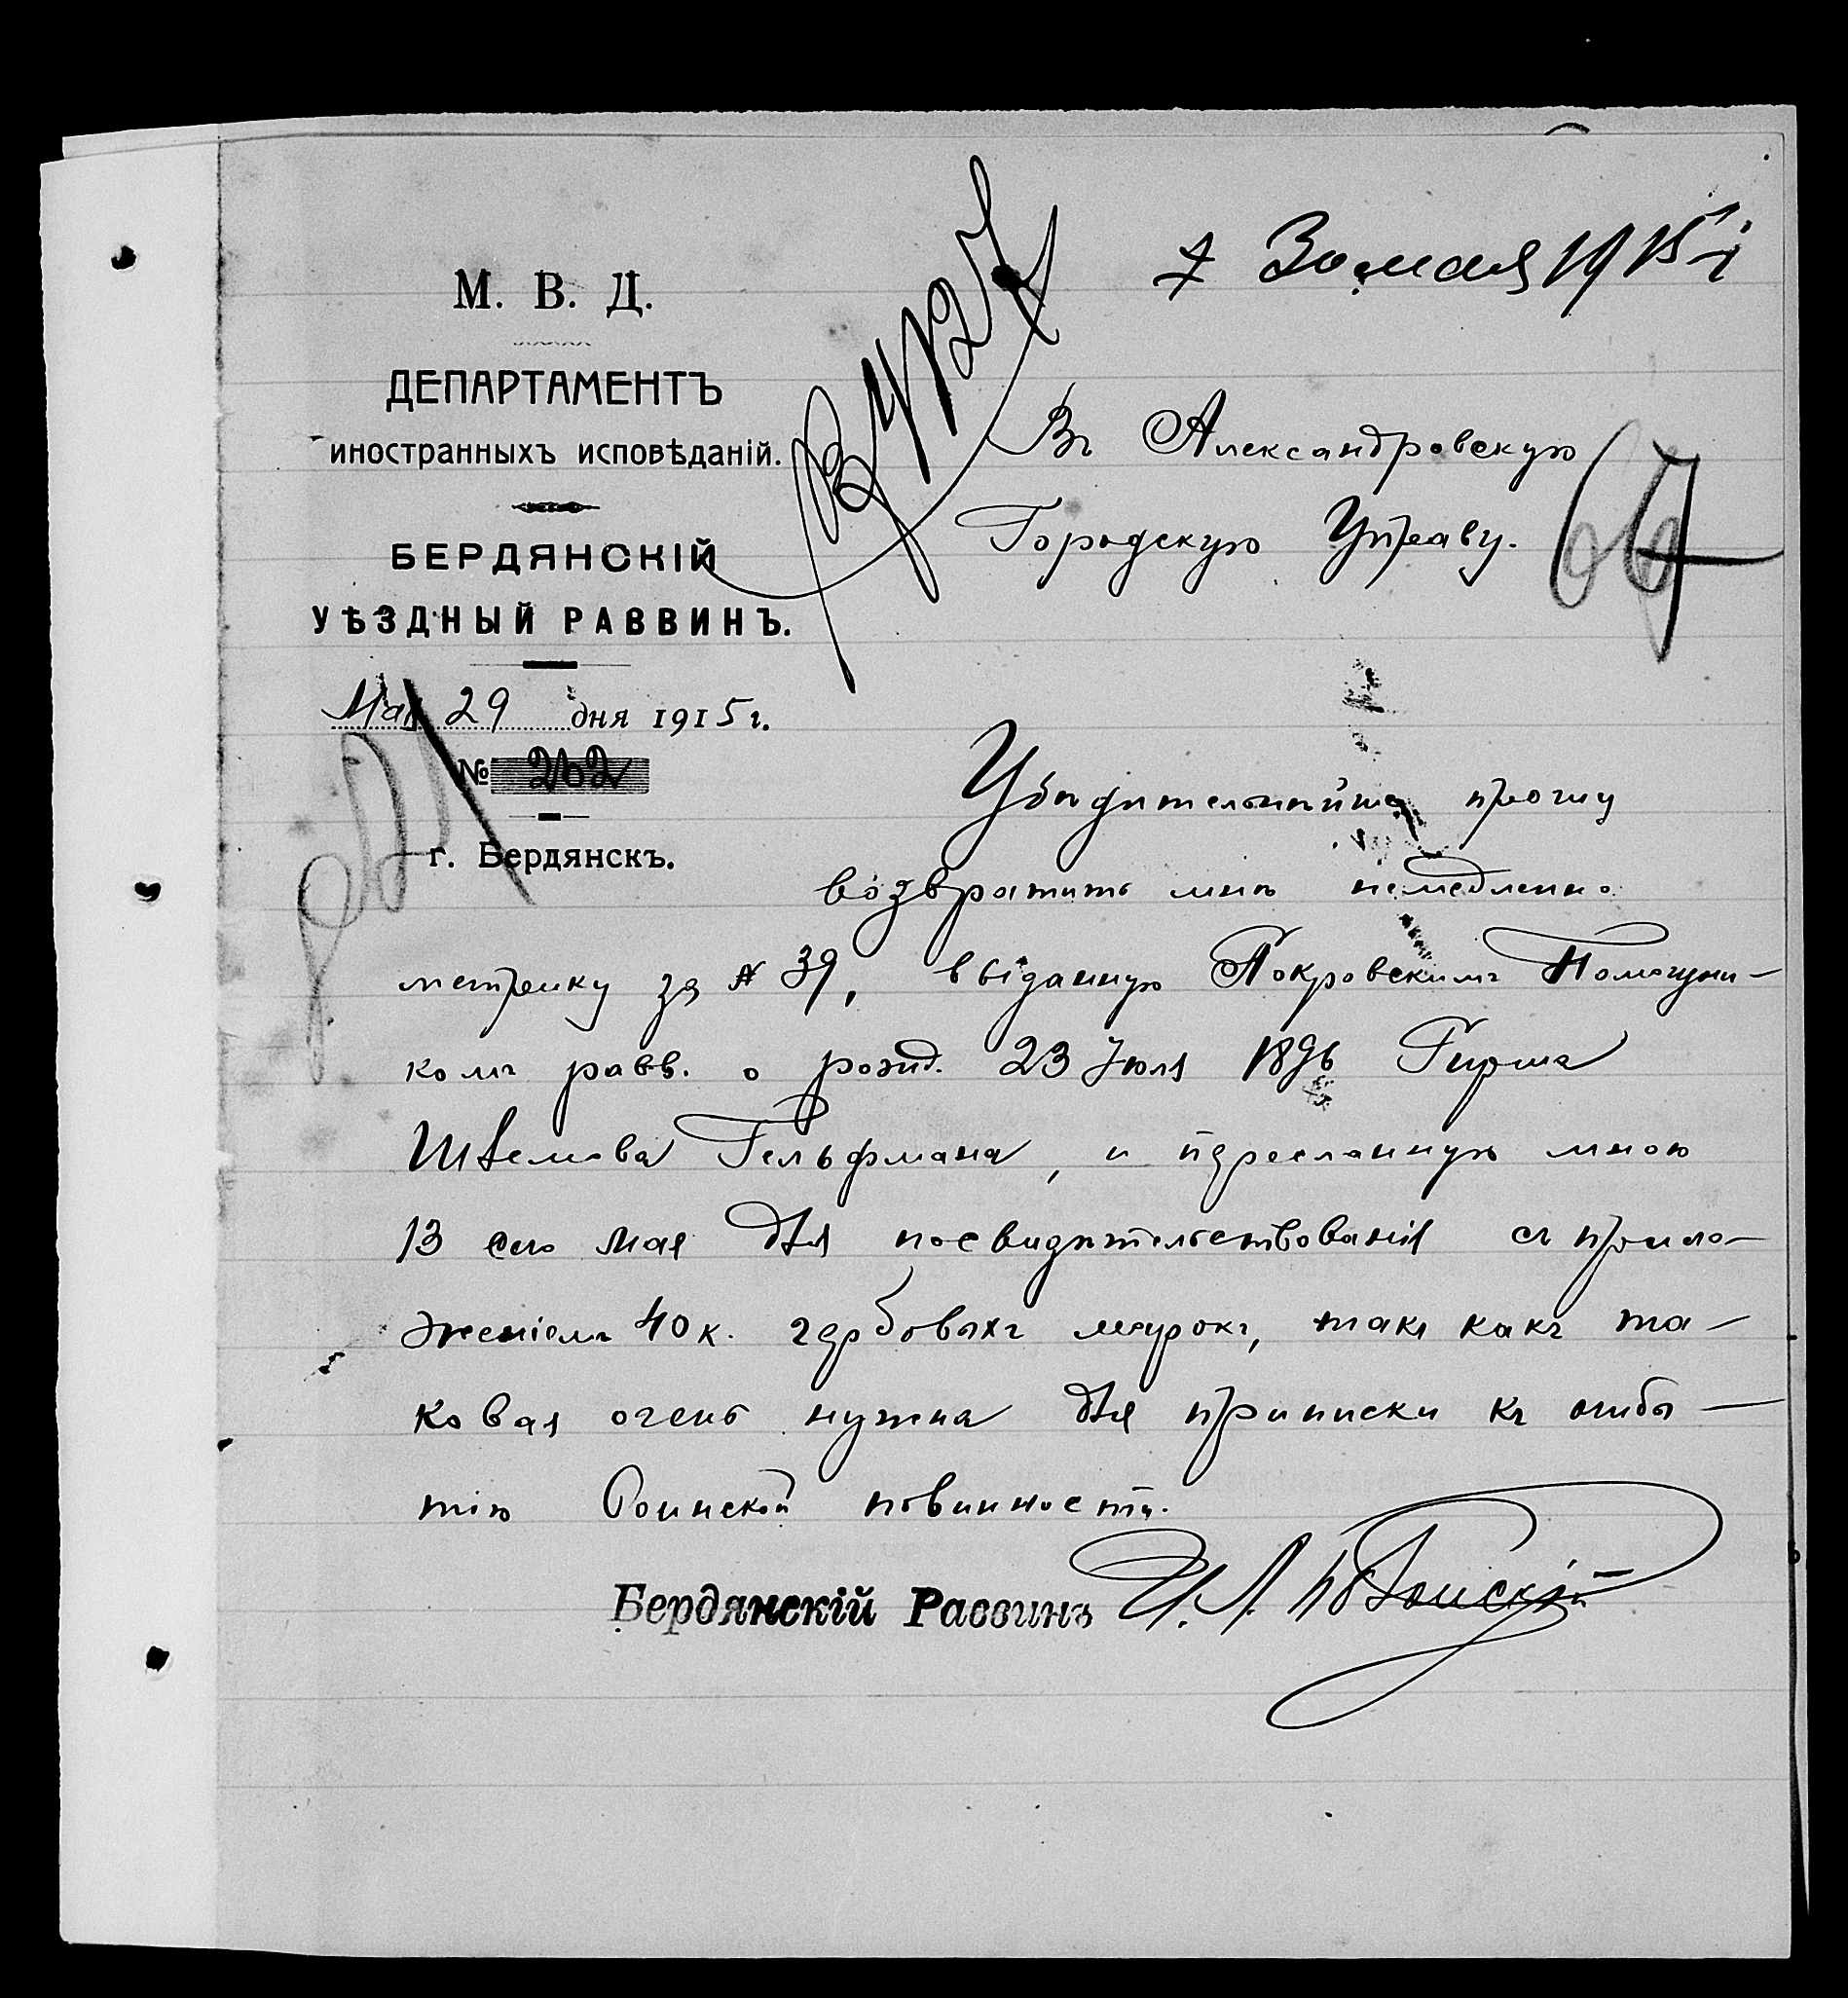 30 мая 1915 г
М. В. Д.
ДЕПАРТАМЕНТЪ
иностранныхъ исповѣданій.
БЕРДЯНСКІЙ
УѢЗДНЫЙ РАВВИНЪ.
Мая 29 дня 1915 г.
№ 262
г. Бердянскъ.
Въ Александровскую
Городскую Управу.
67
Убѣдительнѣйше прошу
возвратить мнѣ немедленно
метрику за № 39, выданную Покровскимъ Помощни-
комъ равв. о рожд. 23 Іюля 1896 Гирша
Гельфмана, и пересланную мною
13 сего мая для посвидѣтельствованія съ прило-
женіемъ 40 к. гербовыхъ марокъ, такъ какъ та-
ковая очень нужна для приписки къ отбы-
тію Воинской повинности.
Бердянскій Раввинъ